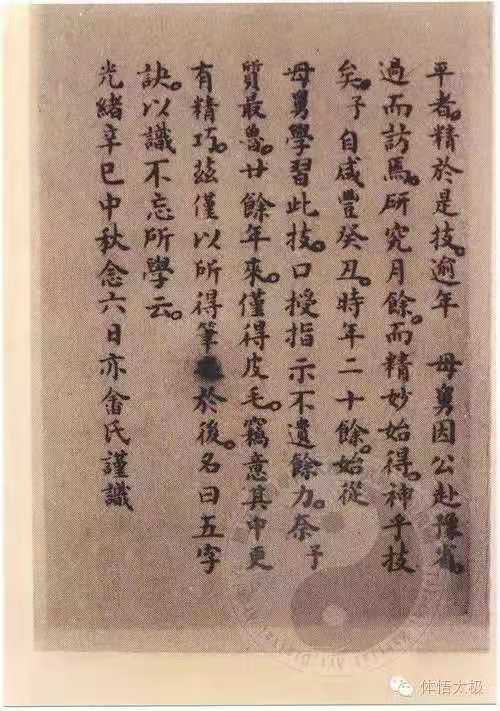 平者。精於是技。逾年 母舅因公赴豫省。
過而訪焉。研究月餘。而精妙始得。神乎技
矣。予自咸豐癸丑。時年二十餘。始從
母舅學習此技。口授指示不遺餘力。奈予
質最魯。廿餘年來。僅得皮毛。竊意其中更
有精巧。茲僅以所得筆於後。名曰五字
訣。以識不忘所學云。
光緒辛巳中秋念六日亦畬氏謹識
体悟太极